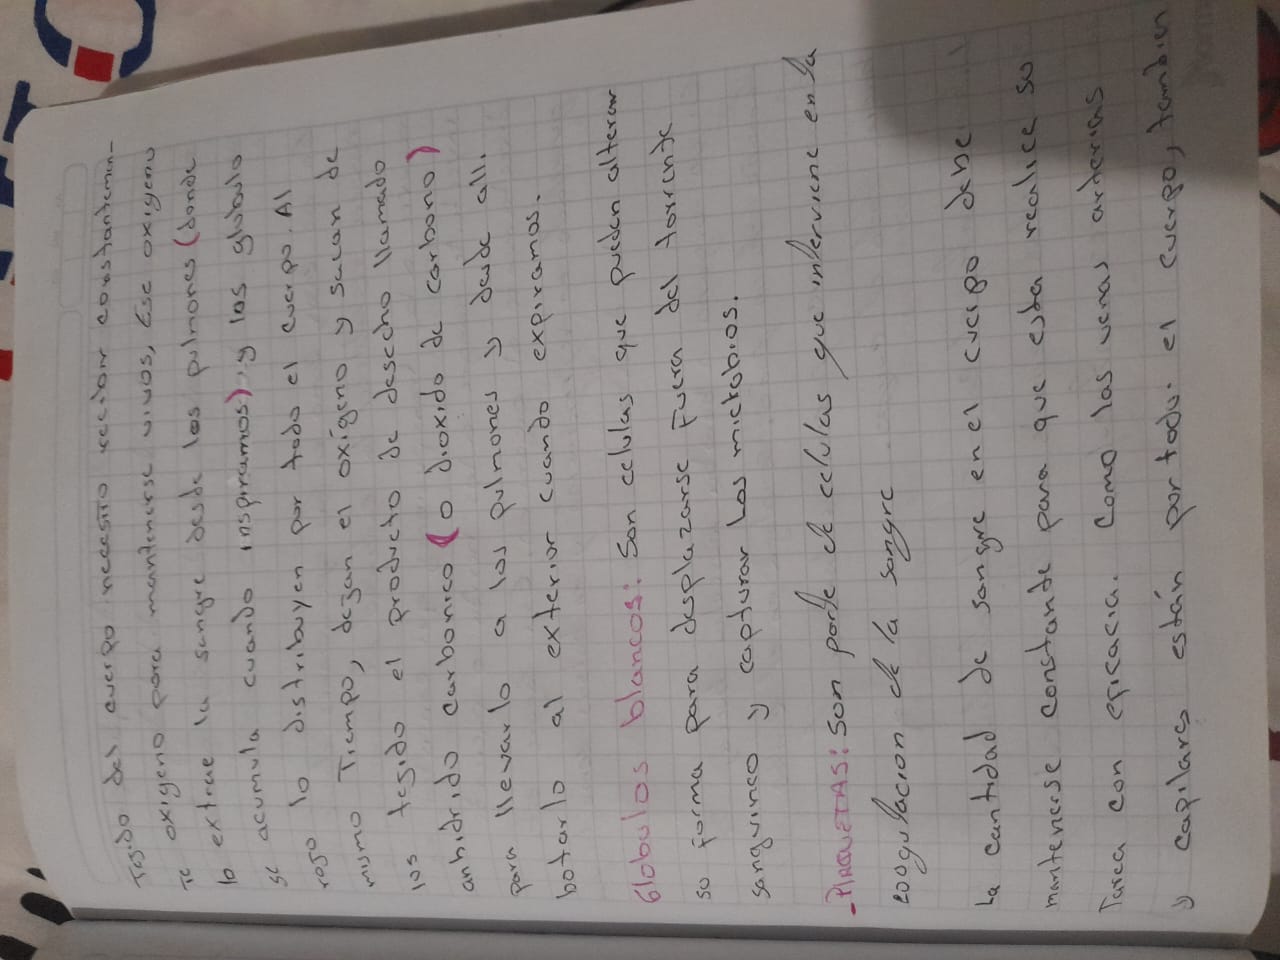 Tejido del cuerpo necesito recibir constantemen-
te oxigeno para mantenerse vivos, Ese oxigeno
lo extrae la sangre desde los pulmones (donde
se acumula cuando inspiramos), y los globulo
rojo lo distribuyen por todo el cuerpo. Al
mismo Tiempo, dejan el oxígeno y sacan de
los tejido el producto de desecho llamado
anhidrido carbonico (o dioxido de carbono)
para llevarlo a los pulmones y desde alli.
botarlo al exterior cuando expiramos.
Globulos blancos: Son celulas que pueden alterar
su forma para desplazarse Fuera del torrente
sanguineo y capturar Los microbios.
- PlAQUETAS: Son parte de celulas que interviene en la
coogulacion de la sangre
La cantidad de sangre en el cuerpo debe
mantenerse constante para que esta realice su
Tarea con eficacia. Como las venas arterias
y capilares están por todo. el cuerpo, tambien